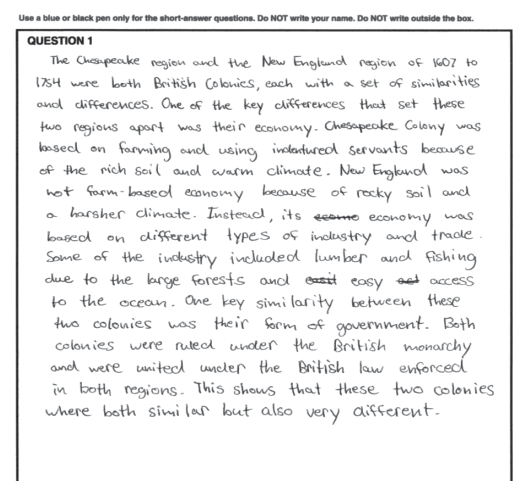 Use a blue or black pen only for the short-answer questions. Do NOT write your name. Do NOT write outside the box.
QUESTION 1
The Chesapeake region and the New England region of 1607 to
1754 were both British Colonies, each with a set of similarities
and differences. One of the key differences that set these
two regions apart was their economy. Chesapeake Colony was
based on farming and using indentured servants because
of the rich soil and warm climate. New England was
not farm-based economy because of rocky soil and
a harsher climate. Instead, its economy was
based on different types of industry and trade.
Some of the industry included lumber and fishing
due to the large forests and easy access
to the ocean. One key similarity between these
two colonies was their form of government. Both
colonies were ruled under the British monarchy
and were united under the British law enforced
in both regions. This shows that these two colonies
where both similar but also very different.